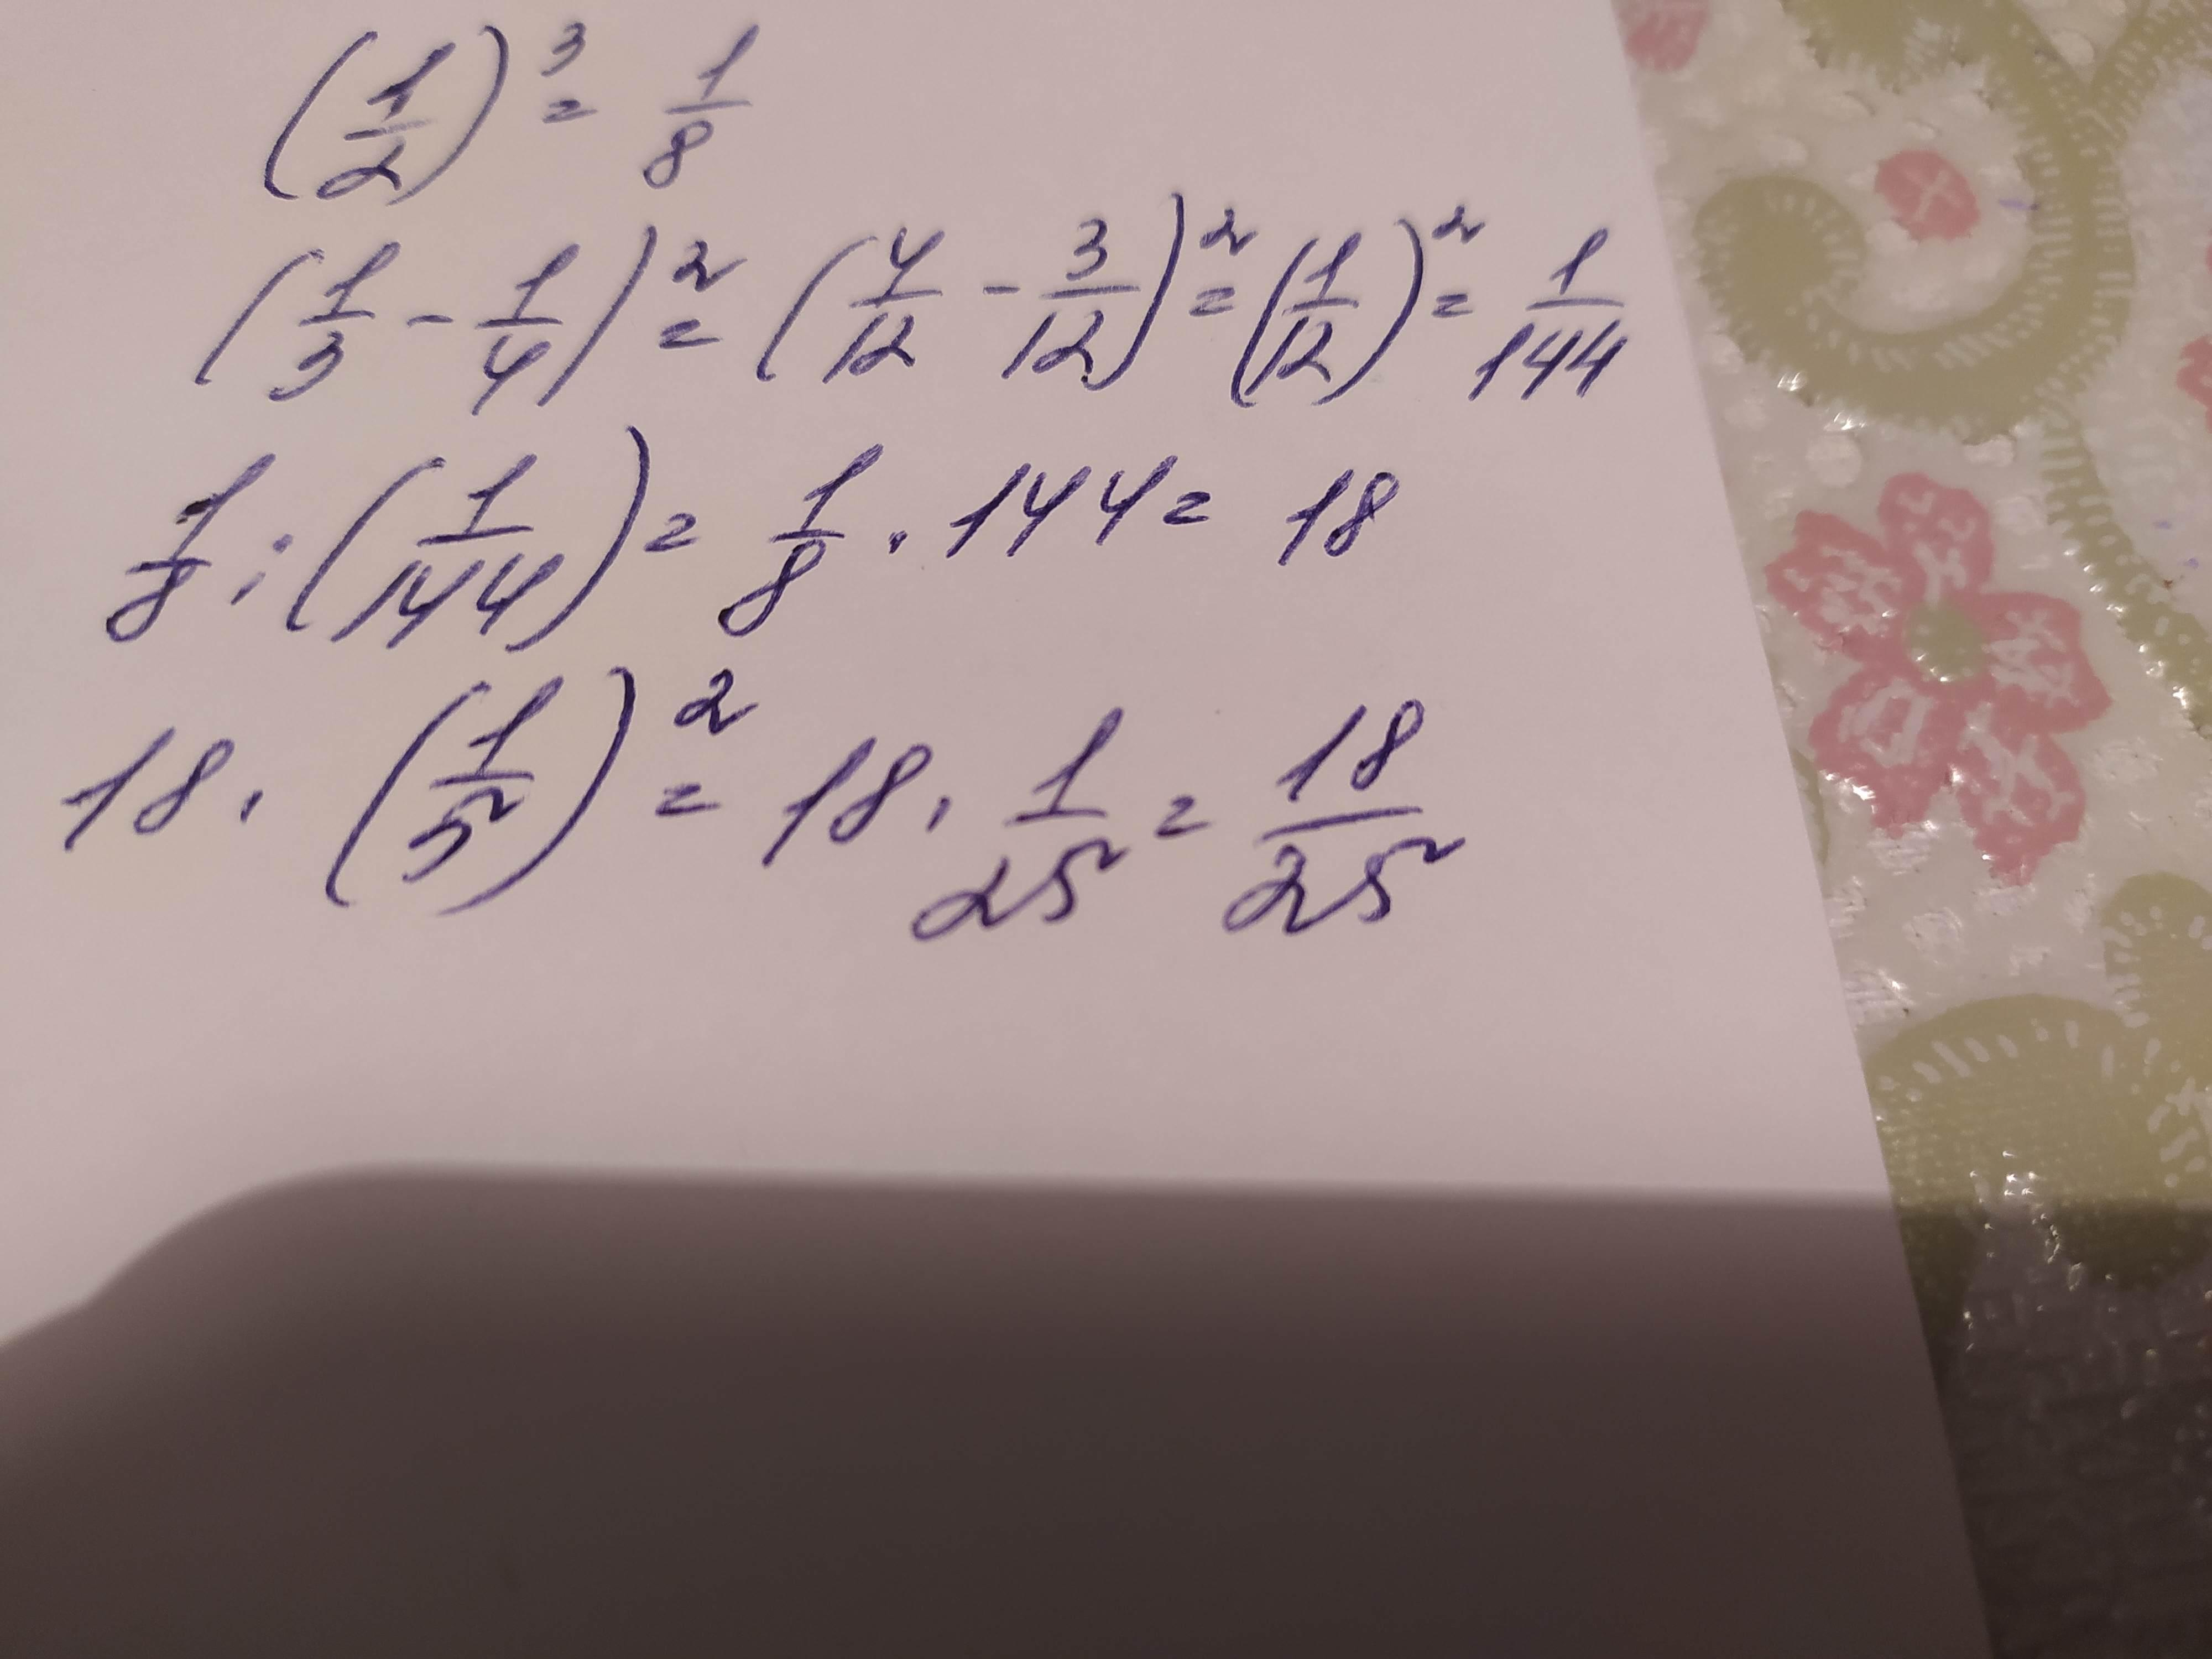 (1/2)³ = 1/8
(1/3 - 1/4)² = (4/12 - 3/12)² = (1/12)² = 1/144
1/8 : (1/144) = 1/8 · 144 = 18
18 · (1/5)² = 18 · 1/25 = 18/25